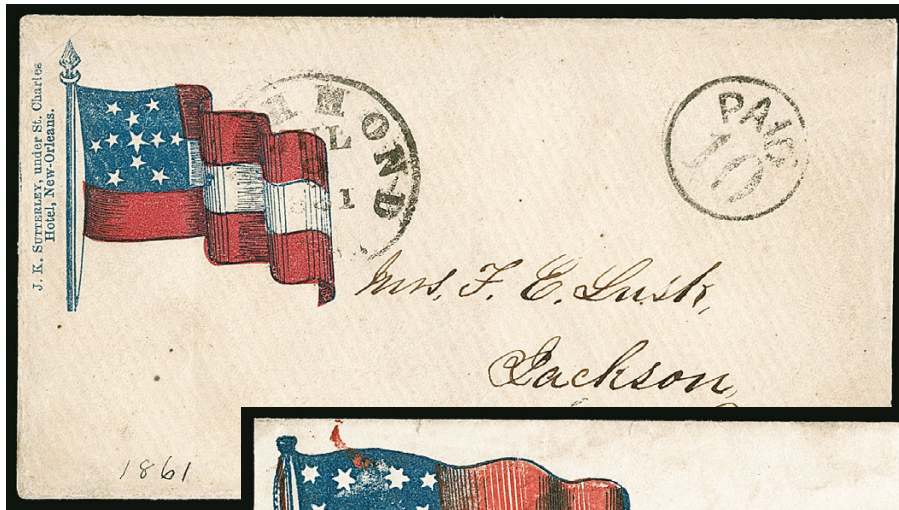 J. K. SUTTERLEY, under St. Charles
Hotel, New-Orleans.
PAID
10
Mrs. F. E. Lusk,
Jackson,
1861